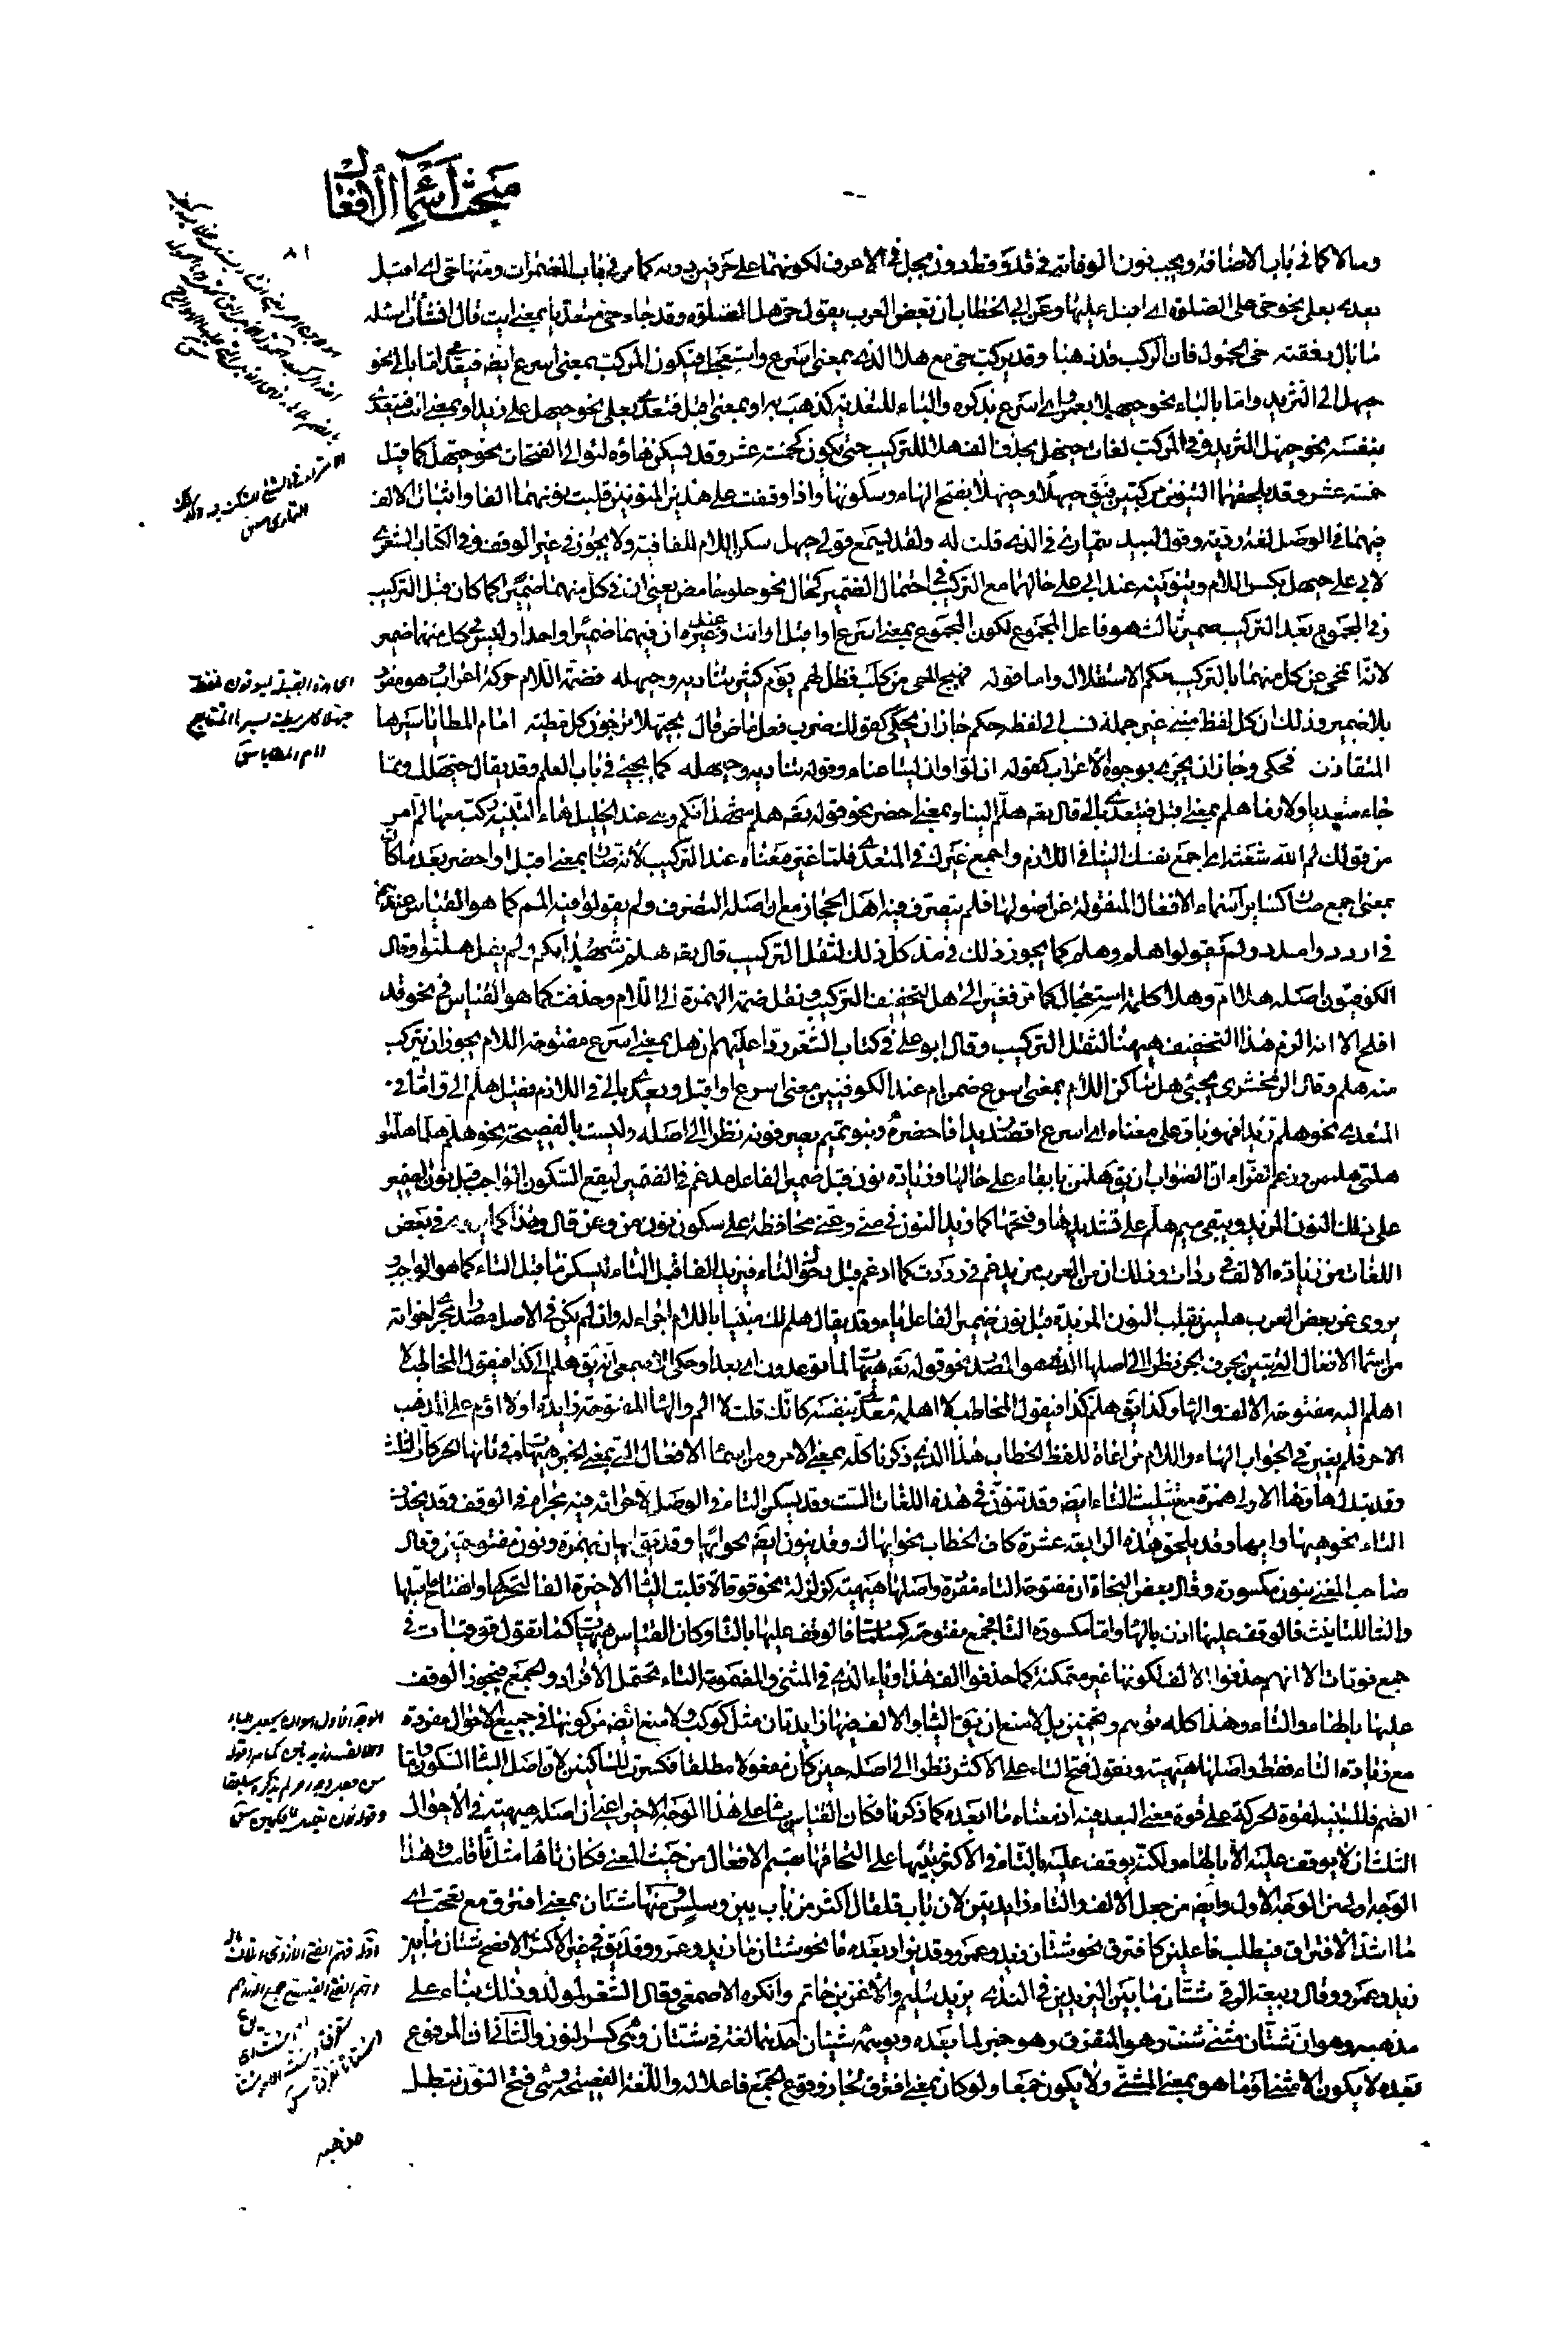 مبحث اسماء الافعال
٨١
ومالا كما فى باب الاضافة ويجب نون الوقاية فى قد وقط دون بجل فى الاعرف لكونهما على حرفين دونه كما مر فى باب المضمرات ومنها حى اى اقبل
يعدى بعلى نحو حى على الصلوة اى اقبل عليها وعن ابى الخطاب ان بعض العرب يقول حى هل الصلوة وقد جاء حى متعديا بمعنى ايت قال انشأت اسئله
ما بال رفقته حى الحمول فان الركب قد ذهبا وقد يركب حى مع هلا الذى بمعنى اسرع واستعجل فيكون المركب بمعنى اسرع ايضا فيتعدى اما بالى نحو
حيهل الى الثريد واما بالباء نحو حيهلا بعمر اى اسرع بذكره والباء للتعدية كذهب به او بمعنى اقبل فتعدى بعلى نحو حيهل على زيد او بمعنى ائت فتتعدى
بنفسه نحو حيهل الثريد وفى المركب لغات حيهل بحذف الف هلا للتركيب حتى يكون كخمسة عشر وقد يسكن هاؤه لتوالى الفتحات نحو حيهل كما قيل
خمسة عشر وقد يلحقهما التنوين مركبين فيق حيهلا وحيهلا بفتح الهاء وسكونها واذا وقفت على هذين المنونين قلبت نونهما الفا واثبات الالف
فيهما فى الوصل لغة ردية وقول لبيد يتمارى فى الذى قلت له ولقد يسمع قولى حيهل سكن اللام للقافية ولا يجوز فى غير الوقف وفى الكتاب الشعرى
لابى على حيهل بكسر اللام وتنوينه عند ابى على حالهما مع التركيب فى احتمال الضمير كحال نحو حلو حامض يعنى ان فى كل منهما ضميرا كما كان قبل التركيب
وفى المجموع بعد التركيب ضمير ثالث هو فاعل المجموع لكون المجموع بمعنى اسرع او اقبل او ائت وعند غيره ان فيهما ضميرا واحدا وليس فى كل منهما ضمير
لانه انمحى عن كل منهما بالتركيب حكم الاستقلال واما قوله فهيج الحى من كلب فظل لهم يوم كثير تناديه وحيهله فضمة اللام حركة اعراب هو مفرد
بلا ضمير وذلك ان كل لفظ مبنى غير جملة نسب الى لفظه حكم جاز ان يحكى كقولك ضرب فعل ماض قال بحيهلا يزجون كل مطية امام المطايا سيرها
المتقاذف فحكى وجاز ان يجرى بوجوه الاعراب كقوله ان لوا وان ليتا عناء وقوله تناديه وحيهله كما يجئ فى باب العلم وقد يقال حيهلك ومما
جاء متعديا ولازما هلم بمعنى اقبل فتتعدى بالى قال تعالى هلم الينا وبمعنى احضر نحو قوله تعالى هلم شهداءكم وهى عند الخليل هاء التنبيه ركب معها لم امر
من قولك لم الله شعثه اى اجمع نفسك الينا فى اللازم واجمع غيرك فى المتعدى فلما غير معناه عند التركيب لانه صار بمعنى اقبل او احضر بعد ما كان
بمعنى اجمع صار كسائر اسماء الافعال المنقولة عن اصولها فلم يتصرف فيه اهل الحجاز مع ان اصله التصرف ولم يقولوا فيه المم كما هو القياس عندهم
فى اردد وامدد ولم يقولوا هلم وهلم كما يجوز ذلك فى مد كل ذلك لثقل التركيب قال تعالى هلم شهداءكم ولم يقل هلموا وقال
الكوفيون اصله هلا ام وهلا كلمة استعجال كما مر فغير الى هل لتخفيف التركيب ونقل ضمة الهمزة الى اللام وحذفت كما هو القياس فى نحو قد
افلح الا انه الزم هذا التخفيف ههنا لثقل التركيب وقال ابو على فى كتاب الشعر ردا عليهم ان هل بمعنى اسرع مفتوحة اللام يجوز ان يركب
منه هلم وقال الزمخشرى يجئ هل ساكن اللام بمعنى اسرع ضمن ام عند الكوفيين معنى اسرع او اقبل ويعدى بالى فى اللازم فقيل هلم الى واما فى
المتعدى نحو هلم زيدا فهو باق على معناه اى اسرع اقصد زيدا فاحضره وبنو تميم يصرفونه نظرا الى اصله وليست بالفصيحة نحو هلم هلما هلموا
هلمى هلممن وزعم الفراء ان الصواب ان يق هلمن بابقاء على حالها وزيادة نون قبل ضمير الفاعل مدغم فى الضمير ليقع السكون الواجب قبل نون الضمير
على ذلك النون المزيد ويبقى ميم هلم على تشديدها وفتحها كما زيد النون فى منى وعنى محافظة على سكون نون من وعن قال وهذا كما يروى فى بعض
اللغات من زيادة الالف فى ردات وذلك ان من العرب من يدغم فى رددت كما ادغم قبل دخول التاء فيزيد الفا قبل التاء ليسكن ما قبل التاء كما هو الواجب و
يروى عن بعض العرب هلمين بقلب النون المزيدة قبل نون ضمير الفاعل ياء وقد يقال هلم لك مبينا باللام اجراء له وان لم يكن فى الاصل مصدرا مجرى اخواته
من اسماء الافعال المبنيين بحرف الجر نظرا الى اصلها الذى هو المصدر نحو قوله تعالى هيهات لما توعدون اى بعد او حكى الاصمعى انه يق هلم الى كذا فيقول المخاطب لا
اهلم اليه مفتوحة الالف والهاء وكذا يق هلم كذا فيقول المخاطب لا اهلمه معدى بنفسه كانك قلت لا المم والهاء المفتوحة زايدة او لا اؤم على المذهب
الاخر فلم يغير فى الجواب الهاء واللام مراعاة للفظ الخطاب هذا الذى ذكرنا كله بمعنى الامر ومن اسماء الافعال التى بمعنى الخبر هيهات فى تائها الحركات الثلث
وقد تبدل هاؤها الاولى همزة مع تثليث التاء ايضا وقد تنون فى هذه اللغات الست وقد يسكن التاء فى الوصل لاجرائه فيه مجراه فى الوقف وقد يحذف
التاء نحو هيها وايها وقد يلحق هذه الرابعة عشرة كاف الخطاب نحو ايهاك وقد ينون ايضا نحو ايهاً وقد يق ايهان بهمزة ونون مفتوحتين وقال
صاحب المغنى بنون مكسورة وقال بعض النحاة ان مفتوحة التاء مفردة واصلها هيهية كزلزلة نحو قوقاة قلبت الياء الاخيرة الفا لتحركها وانفتاح ما قبلها
والتاء للتانيث فالوقف عليها اذن بالهاء واما مكسورة التاء فجمع مفتوحة كمسلمات فالوقف عليها بالتاء وكان القياس هيهيات كما تقول قوقيات فى
جمع قوقاة الا انهم حذفوا الالف لكونها غير متمكنة كما حذفوا الف هذا وياء الذى فى المثنى والمضمومة التاء تحتمل الافراد والجمع فيجوز الوقف
عليها بالهاء والتاء وهذا كله توهم وتخمين بل لا منع ان يق التاء والالف فيها زايدتان مثل كوكب ولا منع ايضا من كونها فى جميع الاحوال مفردة
مع زيادة التاء فقط واصلها هيهية ونقول فتح التاء على الاكثر نظرا الى اصله حين كان مفعولا مطلقا وكسرت للساكنين لان اصل التاء السكون واما
الضم فللتنبيه لقوة الحركة على قوة معنى البعد فيه اذ معناه ما ابعده كما ذكرنا وكان القياس بناء على هذا الوجه الاخير اعنى ان اصله هيهية فى الاحوال
الثلث ان لا يوقف عليه الا بالهاء ولكن يوقف عليه بالتاء فى الاكثر تنبيها على التحاقها بقسم الافعال من حيث المعنى فكان تاءها مثل تاء قامت وهذا
الوجه اولى من الوجه الاول وايضا من جعل الالف والتاء زايدتين لان باب قلقال اكثر من باب يين وسلس ومنها شتان بمعنى افترق مع تعجب اى
ما اشد الافتراق فيطلب فاعلين كما فترق نحو شتان زيد وعمرو وقد يزاد بعده ما نحو شتان ما زيد وعمرو وقد يق فى غير الاكثر الافصح شتان ما بين
زيد وعمرو وقال ربيعة الرقى شتان ما بين اليزيدين فى الندى يزيد سليم والاغر بن حاتم وانكره الاصمعى وقال الشعر لمولد وذلك بناء على
مذهبه وهو ان شتان مثنى شت وهو المتفرق وهو خبر لما بعده ويوهمه شيئان احدهما لغة فى شتان وهى كسر النون والثانى ان المرفوع
بعده لا يكون الا مثنى او ما هو بمعنى المثنى ولا يكون جمعا ولو كان بمعنى افترق لجاز وقوع الجمع فاعلا له واللغة الفصيحة وهى فتح النون تبطل
مذهبه